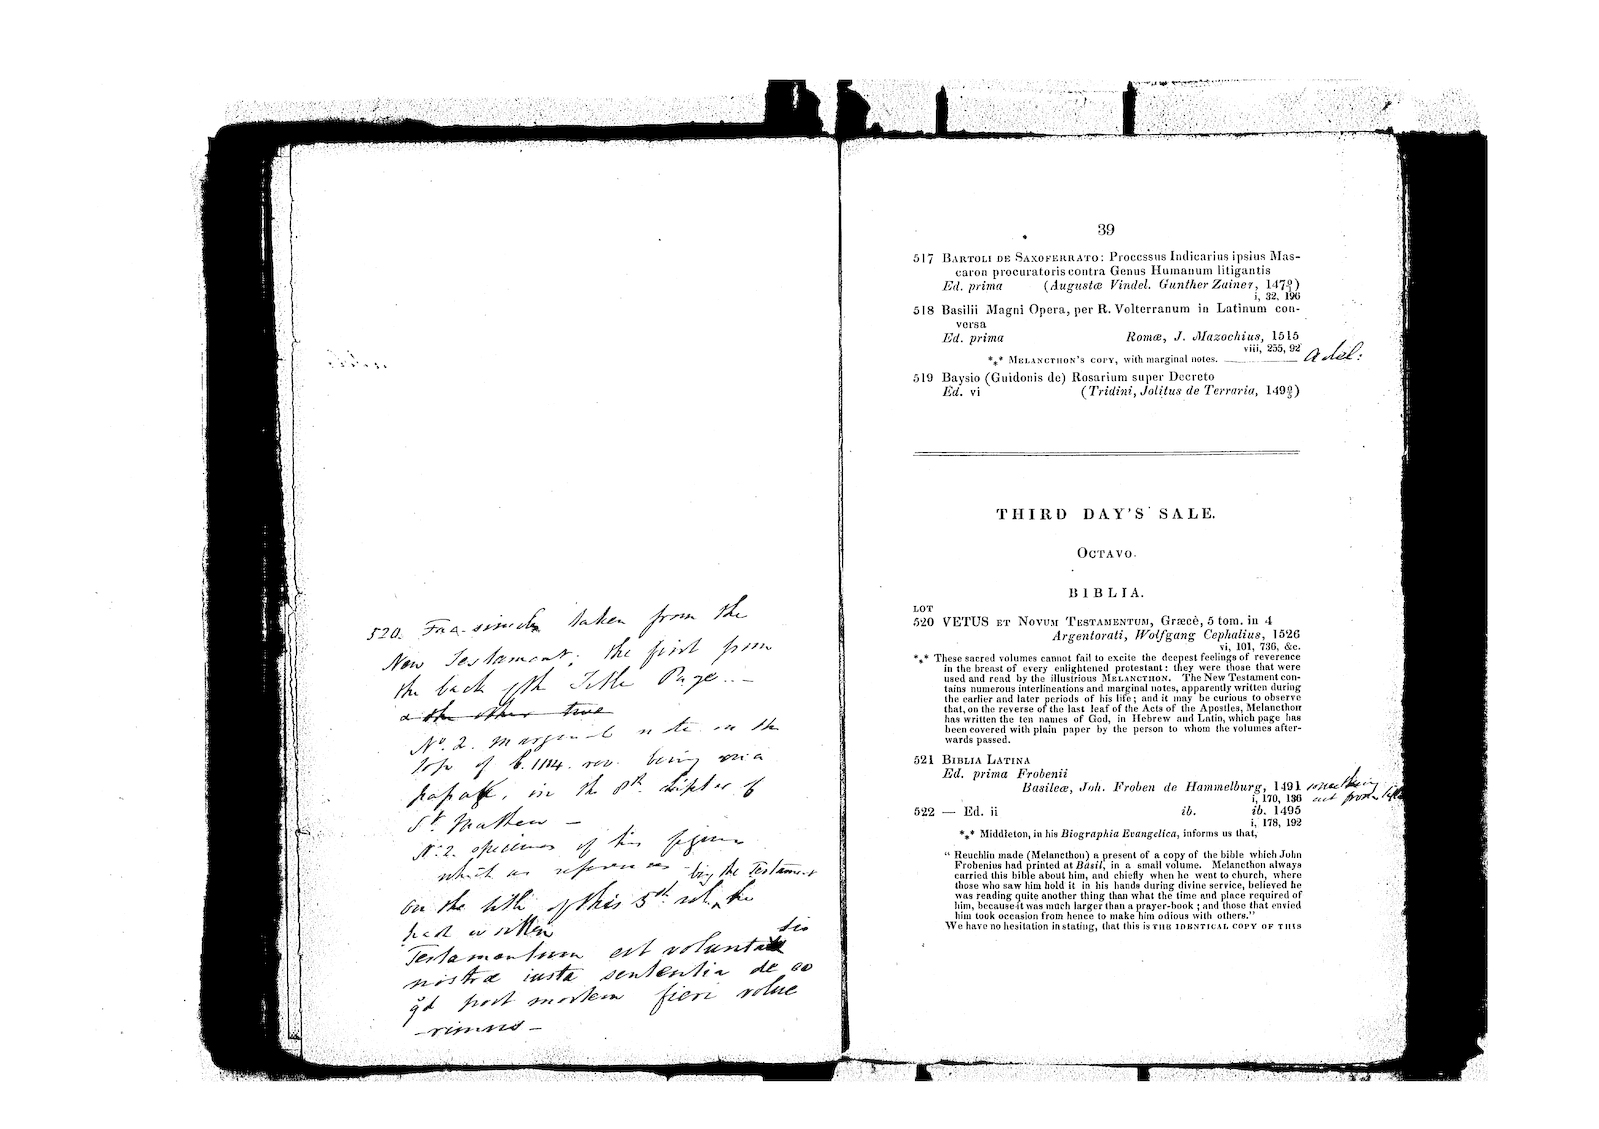 520. Fac-similes taken from the
New Testament; the first from
the back of the Title Page. —
a the other two
No. 2. marginal note on the
top of b. 1114. rev. being on a
in the 8th. chapter of
St. Matthew —
No. 2. specimens of his figures
which as references
by the Testament
on the title of this 5th vol. he
had written
tis
Testamentum est voluntatis
nostræ iusta sententia de eo
qd post mortem fieri volue
-rimus-
39
517 BARTOLI DE SAXOFERRATO: Processus Indicarius ipsius Mas-
caron procuratoris contra Genus Humanum litigantis
Ed. prima (Augustæ Vindel. Gunther Zainer, 147⁰₁)
i, 32, 196
518 Basilii Magni Opera, per R. Volterranum in Latinum con-
versa
Ed. prima Romæ, J. Mazochius, 1515
viii, 255, 92
*⁎* MELANCTHON'S COPY, with marginal notes.
519 Baysio (Guidonis de) Rosarium super Decreto
Ed. vi (Tridini, Jolitus de Terraria, 149⁰₅)
THIRD DAY'S SALE.
OCTAVO.
BIBLIA.
LOT
520 VETUS ET NOVUM TESTAMENTUM, Græcè, 5 tom. in 4
Argentorati, Wolfgang Cephalius, 1526
vi, 101, 736, &c.
*⁎* These sacred volumes cannot fail to excite the deepest feelings of reverence
in the breast of every enlightened protestant: they were those that were
used and read by the illustrious MELANCTHON. The New Testament con-
tains numerous interlineations and marginal notes, apparently written during
the earlier and later periods of his life; and it may be curious to observe
that, on the reverse of the last leaf of the Acts of the Apostles, Melancthon
has written the ten names of God, in Hebrew and Latin, which page has
been covered with plain paper by the person to whom the volumes after-
wards passed.
521 BIBLIA LATINA
Ed. prima Frobenii
Basileæ, Joh. Froben de Hammelburg, 1491 something
i, 170, 136 cut from title
522 — Ed. ii ib. ib. 1495
i, 178, 192
*⁎* Middleton, in his Biographia Evangelica, informs us that,
"Reuchlin made (Melancthon) a present of a copy of the bible which John
Frobenius had printed at Basil, in a small volume. Melancthon always
carried this bible about him, and chiefly when he went to church, where
those who saw him hold it in his hands during divine service, believed he
was reading quite another thing than what the time and place required of
him, because it was much larger than a prayer-book; and those that envied
him took occasion from hence to make him odious with others."
We have no hesitation in stating, that this is THE IDENTICAL COPY OF THIS